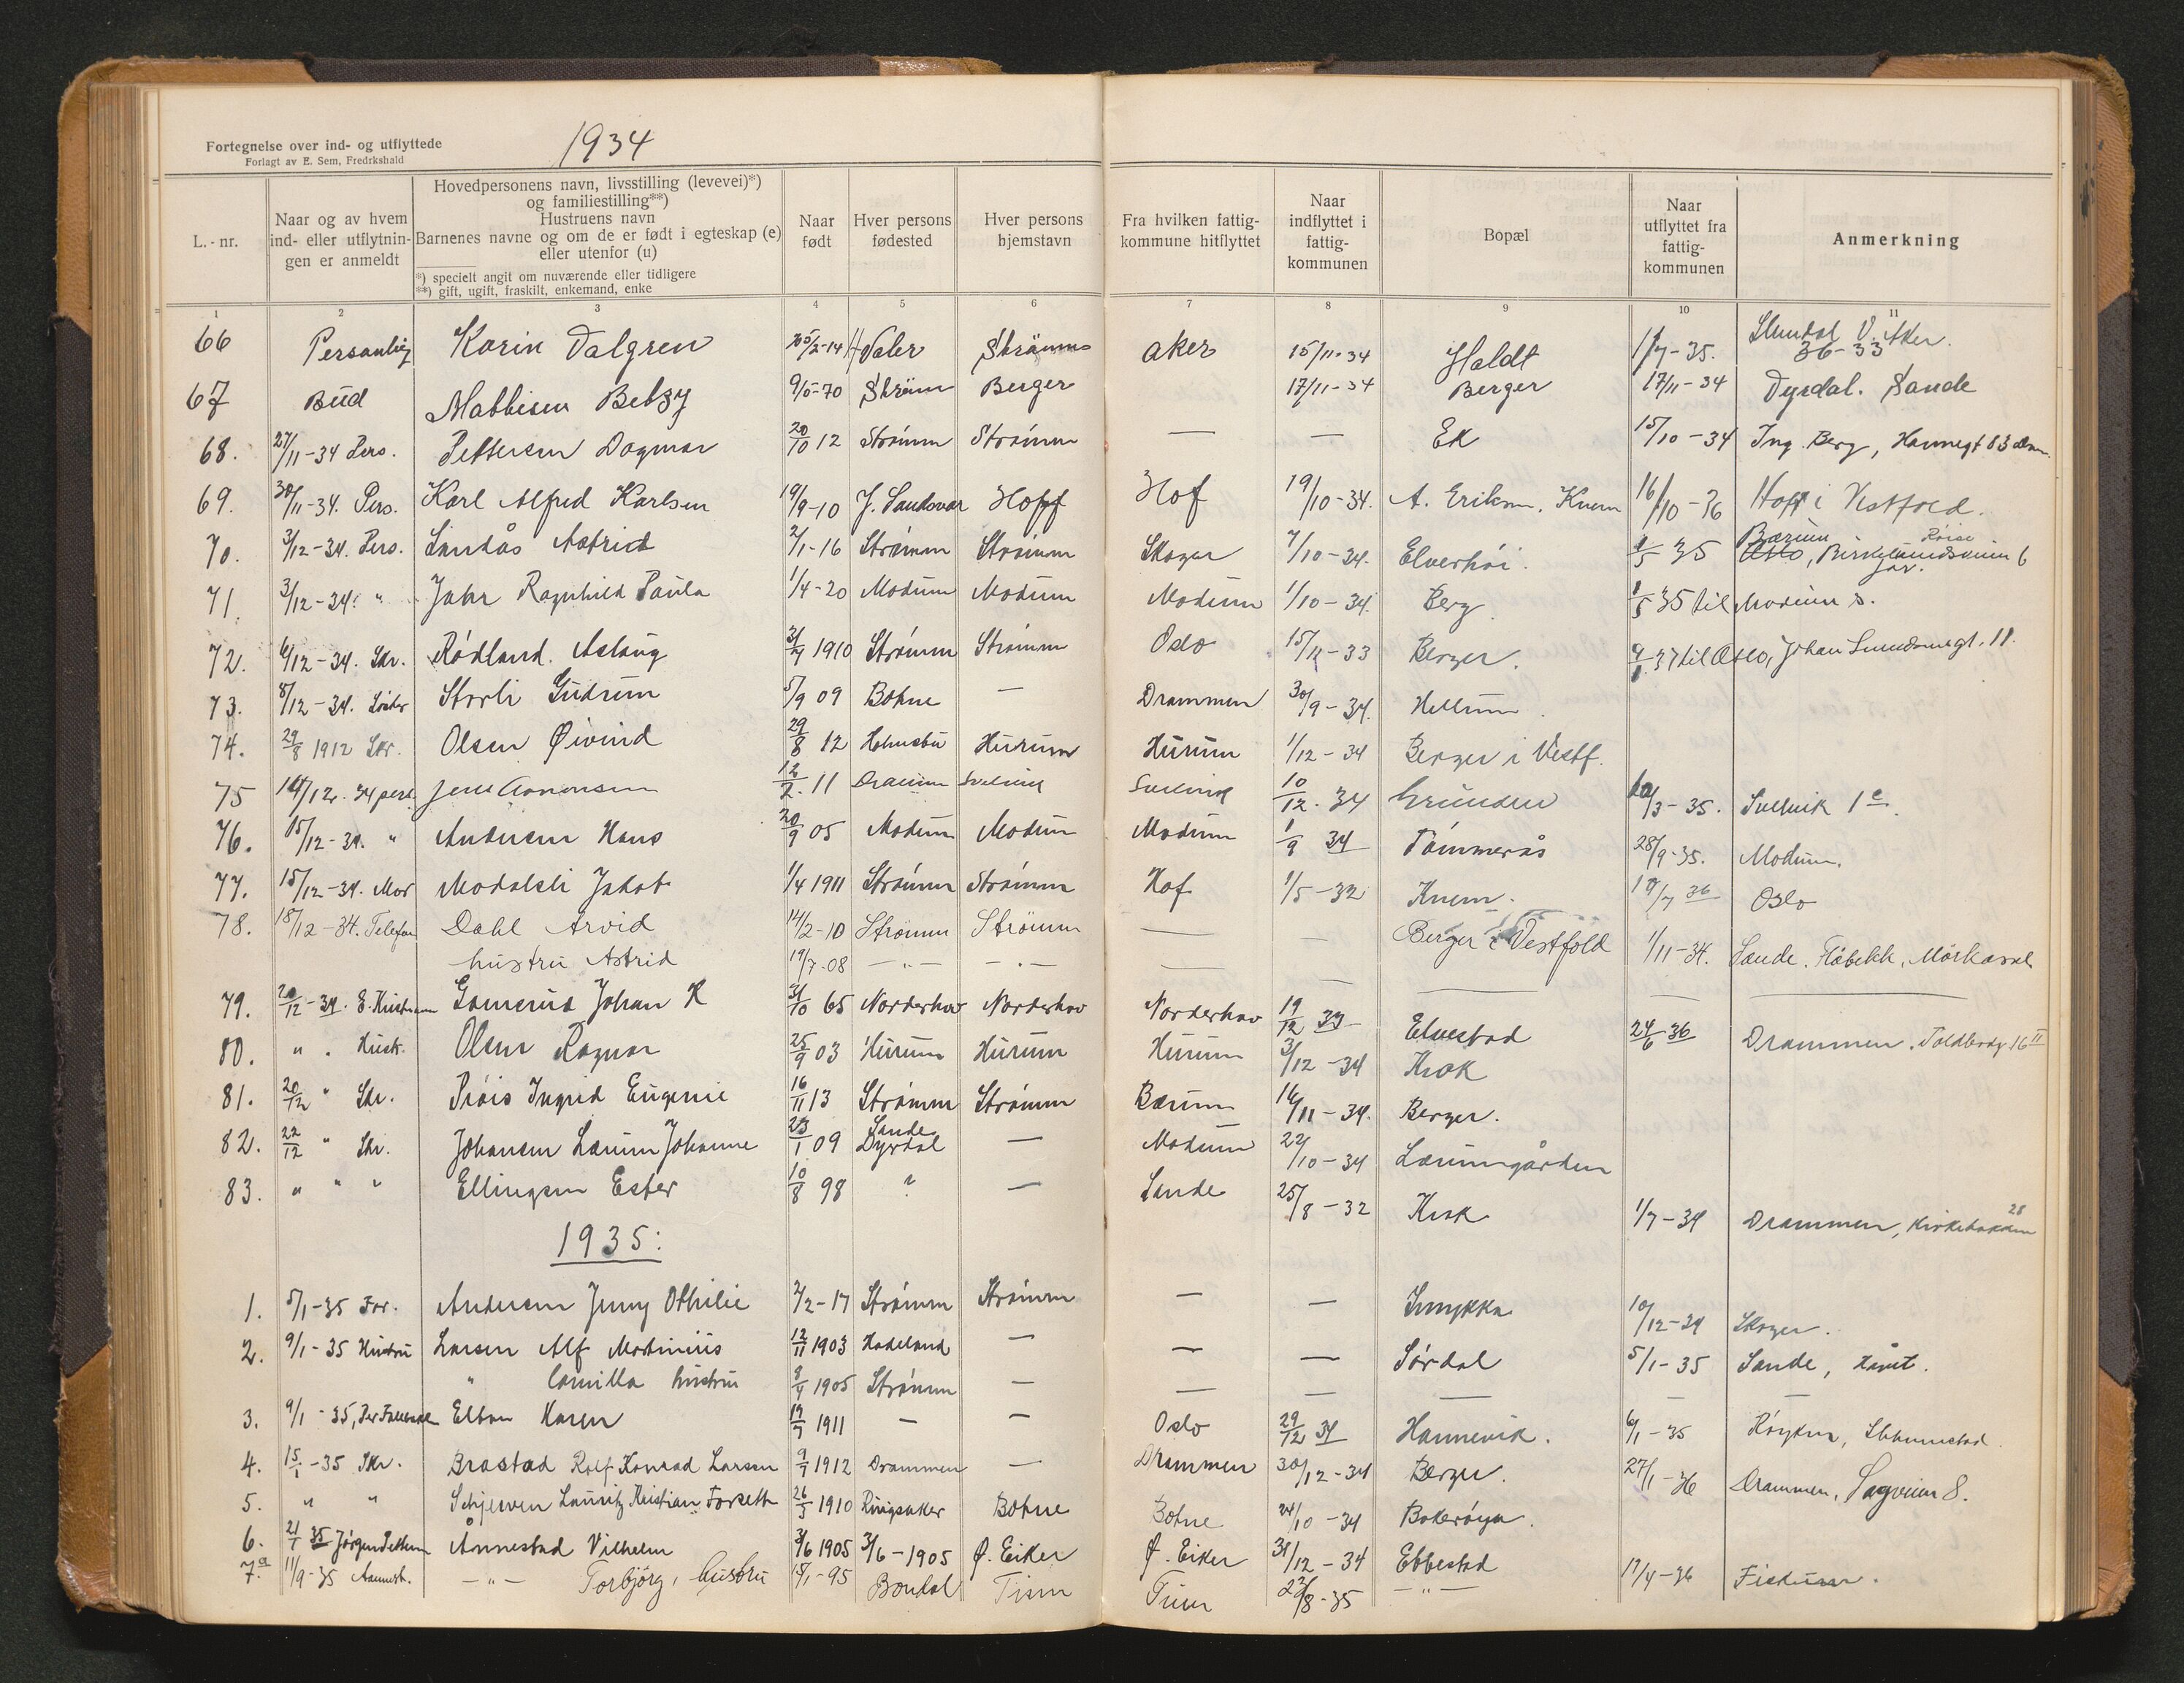 Fortegnelse over ind- og utflyttede
Forlagt av E. Sem, Fredrkshald
1934
L.-nr. | Naar og av hvem ind- eller utflytningen er anmeldt | Hovedpersonens navn, livsstilling (levevei)*) og familiestilling**) Hustruens navn Barnenes navne og om de er født i egteskap (e) eller utenfor (u) *) specielt angit om nuværende eller tidligere **) gift, ugift, fraskilt, enkemand, enke | Naar født | Hver persons fødested | Hver persons hjemstavn | Fra hvilken fattigkommune hitflyttet | Naar indflyttet i fattigkommunen | Bopæl | Naar utflyttet fra fattigkommunen | Anmerkning
1 2 3 4 5 6 7 8 9 10 11
66 Personlig Karin Dalgren 25/2-14 Våler Strømm Aker 15/11-34 Holdt 1/7-35. V. Aker. 36-33
67 Bud Mathisen Betzy 9/5-70 Strøm Berger 17/11-34 Berger 17/11-34 Dyrdal. Sande
68. 27/11-34 Pers. Pettersen Dagmar 20/10 12 Strømm Strømm — — Ek 15/10-34 Ing. Berg, Havnegt 83 Dm.
69. 30/11-34. Pers. Karl Alfred Karlsen 19/9-10 J. Sandsvær Hoff Hof 19/10-34. A. Eriksen, Knem 16/10-36 Hoff i Vestfold.
70. 3/12-34. Pers. Lindås Astrid 2/1-16 Strømm Strømm Skoger 7/10-34. Elverhøi. 1/5 35 Bærum Oslo, Birkelundsveien 6 Røise Jar.
71. 3/12-34. " Jahr Ragnhild Paula 1/4-20 Modum Modum Modum 1/10-34. Berg 1/5 35 til Modum s.
72. 6/12-34. Skr. Rødland. Aslaug 31/7 1910 Strømm Strømm Oslo 15/11-33 Berger. 37 til Oslo, Johan Svendsensgt. 11.
73. 8/12-34. Storli Gudrun 5/9 09 Botne — Drammen 30/9-34. Hellum.
74. 29/8 1912 Skr. Olsen Øivind 29/8 12 Holmsbu Hurum Hurum 1/12-34 Berger i Vestf.
75 14/12. 34 pers. Jens Aronsen 12/2. 11 Dramm Svelvik Svelvik 10/12. 34 Grunden 20/3-35. Svelvik 1e.
76. 15/12-34. " Andersen Hans 20/9 05 Modum Modum Modum 1/9 34 Tømmerås 28/9-35. Modum.
77. 15/12-34. Mor Modalsli Jakob 1/4 1911 Strømm Strømm Hof 1/5-32 Knem. 18/7 36 Oslo
78. 18/12-34. Telefon Dahl Arvid 14/2-10 Strømm Strømm — — Berger i Vestfold 1/11-34. Sande. Fløbekk, Mörkassel
hustru Astrid 19/7-08 — " — — " — — — — —
79. 20/12-34. E. Kristiansen Gomerud Johan K 31/10 65 Norderhov Norderhov Norderhov 19/12 33 Elvestad 24/6 36 Drammen. Toldbodg 16 II
80. " " Husk. Olsen Ragnar 25/9 03 Hurum Hurum Hurum 3/12-34 Krok
81. 20/12 " Skr. Prøis Ingrid Eugenie 16/11 13 Strømm Strømm Bærum 16/11-34. Berger.
82. 22/12 " Skr. Johansen Lærum Johanne 23/1 09 Sande Dyrdal — Modum 22/10-34 Lærumgården
83. " " " Ellingsen Ester 10/8 98 ? — Sande 25/8-32 Krok 1/7-34 Drammen, Kirkebakken 28
1935:
1. 5/1-35 For. Andersen Jenny Othilie 2/2-17 Strømm Strømm — — Smykka 10/12-34 Skoger.
2. 9/1-35 Hustru Larsen Alf Martinius 12/11 1903 Hadeland — — — Sørdal 5/1-35 Sande,
" Camilla hustru 9/4 1905 Strømm — — — — — —
3. 9/1-35, Karen 19/7 1911 — — Oslo 29/12 34 Hannevik. 6/1-35 Røyken,
4. 15/1-35 Skr. Brastad Rolf Konrad Larsen 9/7 1912 Drammen — Drammen 30/12-34 Berger. 27/1-36 Drammen, Sagveien 8.
5. " " Schjerven Lauritz Kristian Forseth 26/3 1910 Ringsaker Botne Botne 24/10-34 Bokerøya.
6. 21/1 35 Jørgen Pettersen Ånnestad Vilhelm 3/6 1905 3/6-1905 Ø. Eiker Ø. Eiker 31/12-34 Ebbestad
7.a 11/9-35 Aannest. — " — Torbjörg, hustru 15/1-95 Bondal Tinn Tinn 23/8-35 — " — 17/4-36 Fiskum.